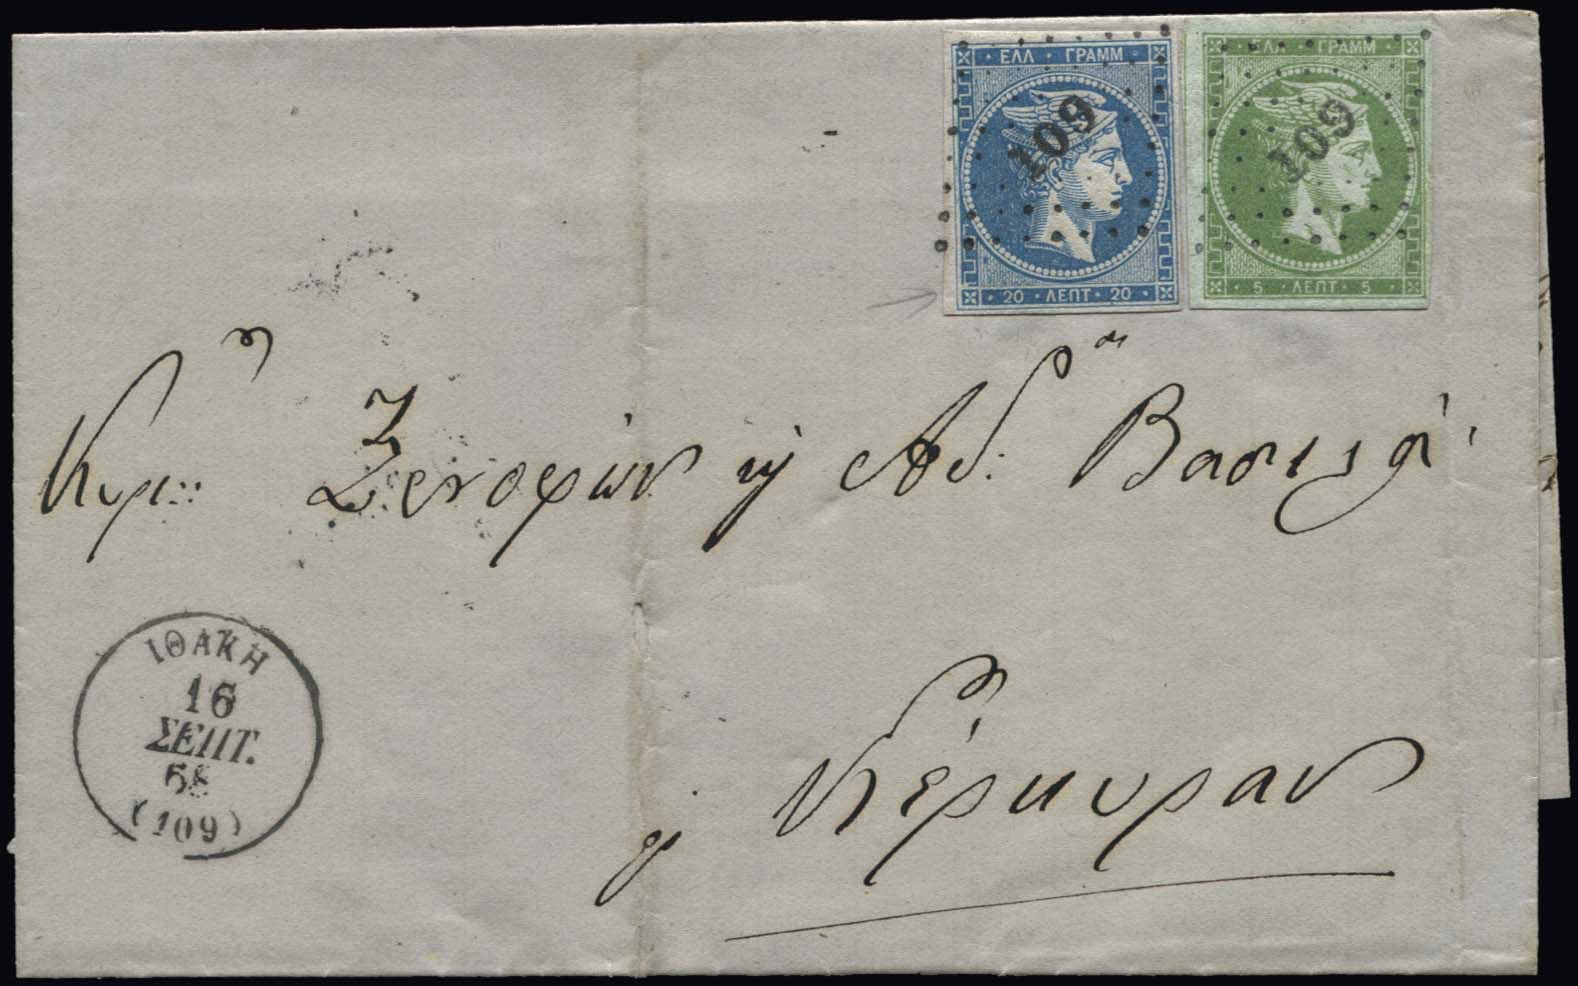 ΕΛΛ ΓΡΑΜΜ
109
20 ΛΕΠΤ 20
ΕΛΛ ΓΡΑΜΜ
109
5 ΛΕΠΤ 5
Ξενοφών Αδ: Βασιλ
Κέρκυραν
ΙΘΑΚΗ
16
ΣΕΠΤ.
68
(109)